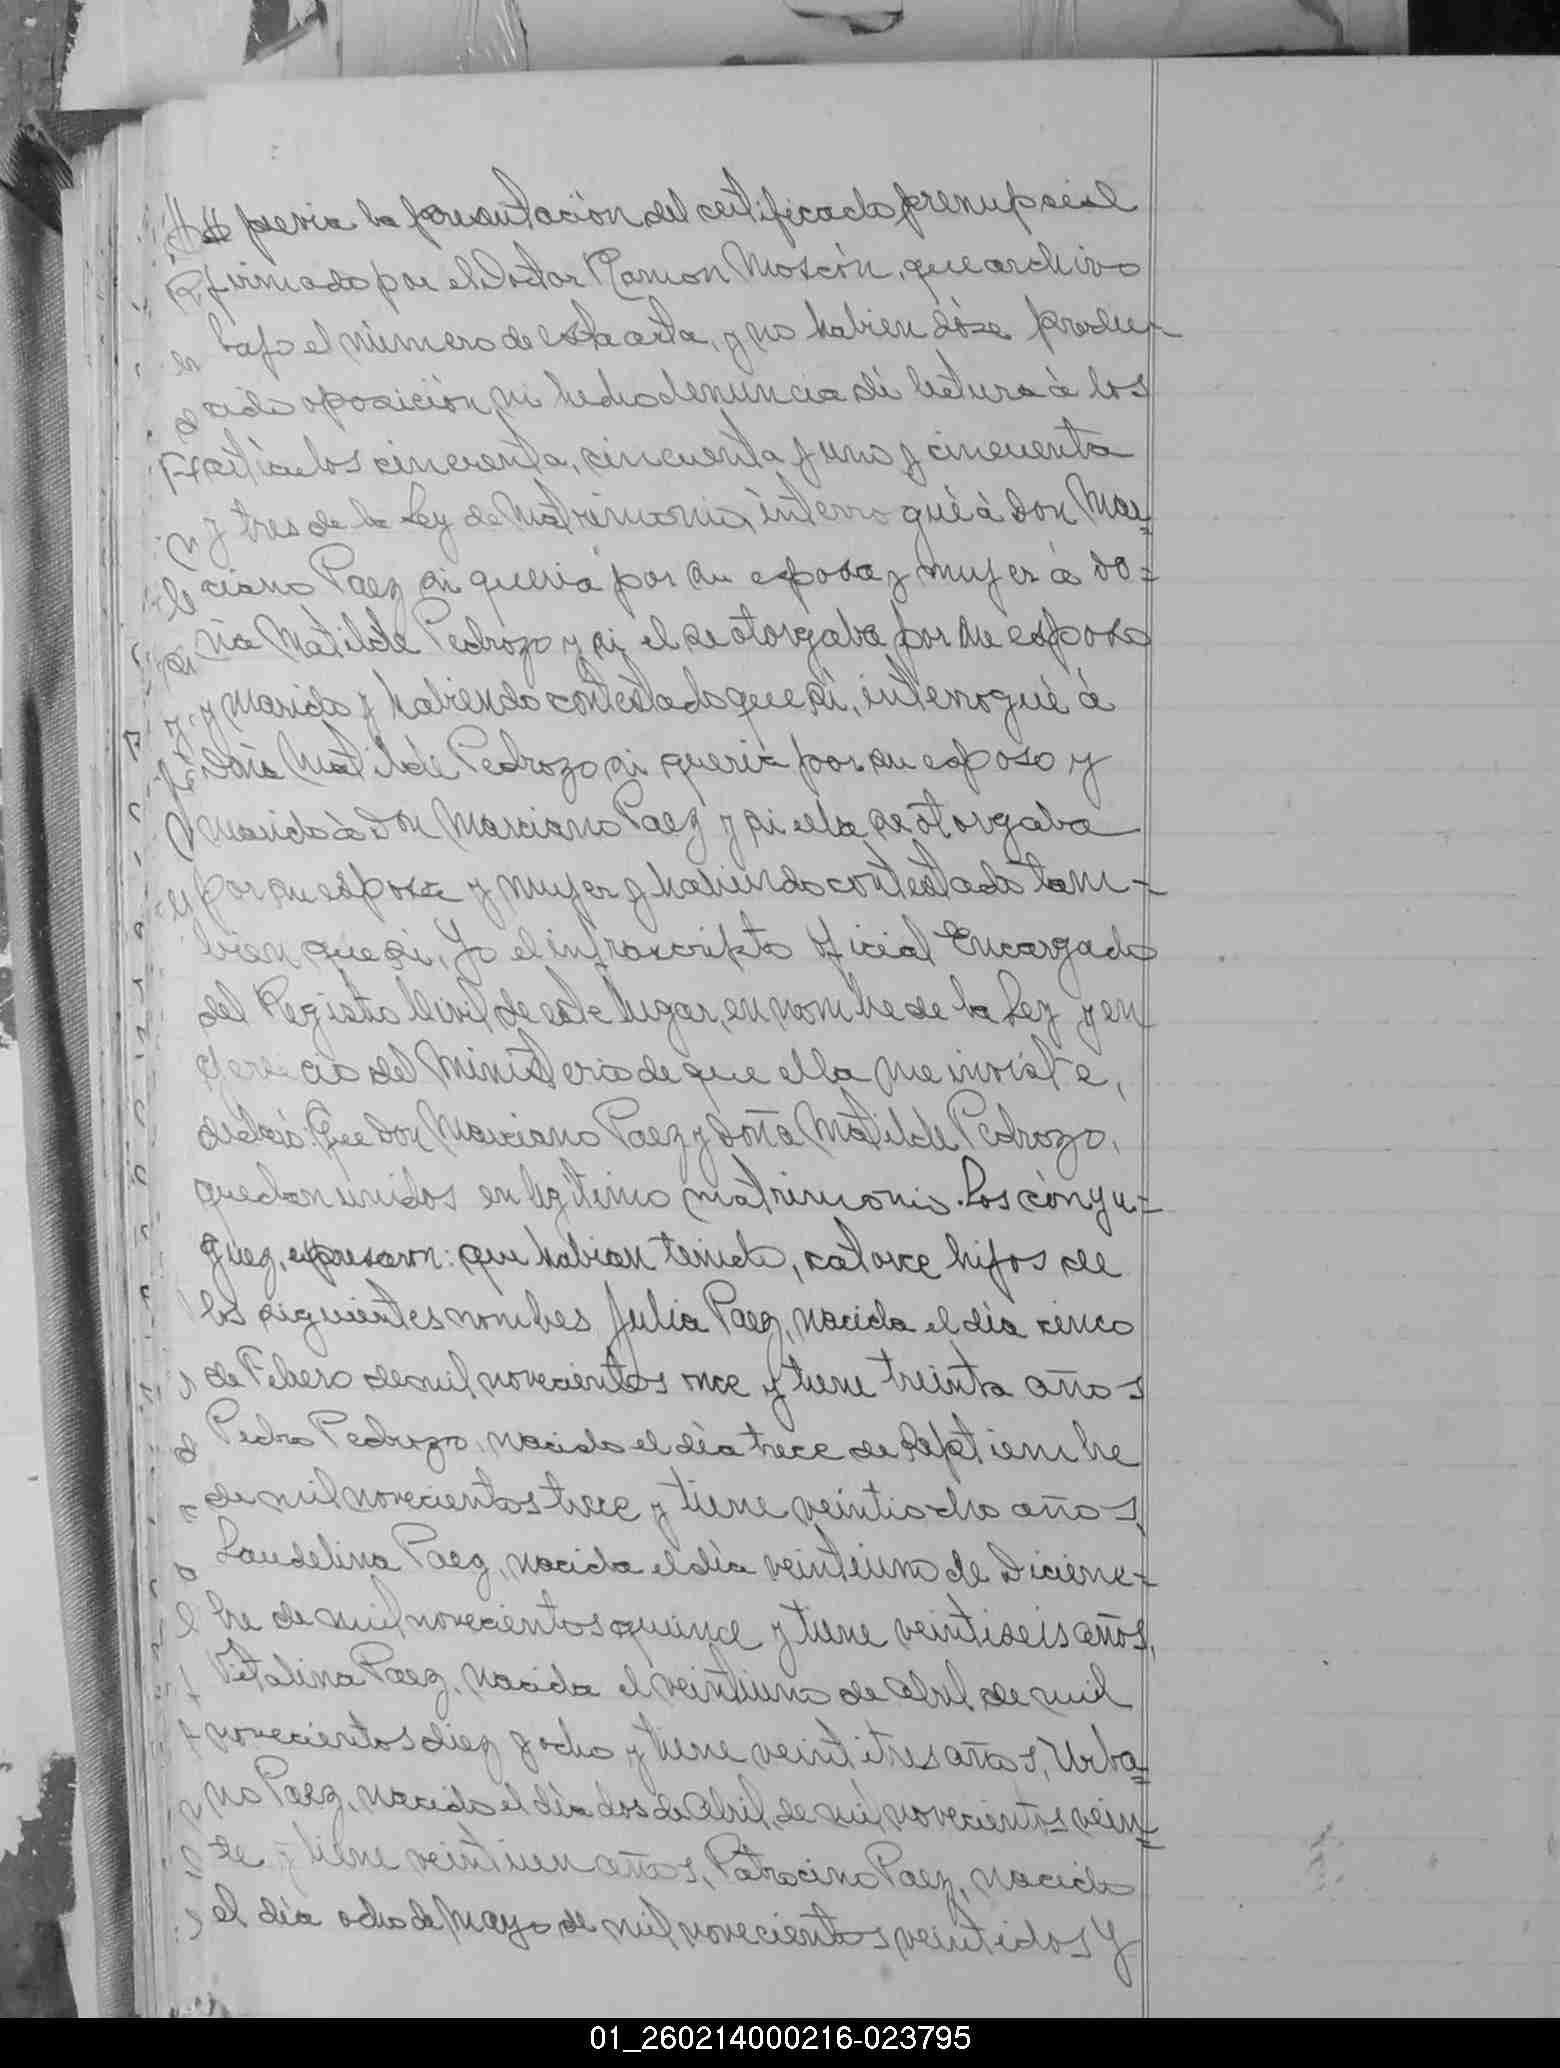 previa la presentación del certificado prenupcial
firmado por el Doctor Ramon Moscón, que archivo
bajo el número de esta acta, y no habiendóse produ-
cido oposición, ni hecho denuncia dí lectura à los
artículos cincuenta, cincuenta y uno y cincuenta
y tres de la Ley de Matrimonio, interrogué à Don Mar=
ciano Paez si queria por su esposa y mujer à Do=
ña Matilde Pedrozo y si el se otorgaba por su esposo
y marido y habiendo contestado que si, interrogué à
Doña Matilde Pedrozo si queria por su esposo y
marido à Don Marciano Paez y si ella se otorgaba
por su esposa y mujer y habiendo contestado tam-
bien que si, Yo el infrascripto Oficial Encargado
del Registro Civil de este lugar, en nombre de la Ley y en
del Ministerio de que ella me inviste,
declaro: Que Don Marciano Paez y Doña Matilde Pedrozo,
quedan unidos en legítimo matrimonio. Los cónyu-
guez, expresaron: que habian tenido, catorce hijos de
los siguientes nombres Julia Paez, nacida el día cinco
de Febrero de mil novecientos once y tiene treinta años
Pedro Pedrozo, nacido el día trece de Septiembre
de mil novecientos trece y tiene veintiocho años,
Laudelina Paez, nacida el día veintiuno de Diciem-
bre de mil novecientos quince y tiene veintiseis años,
Vitalina Paez, nacida el veintiuno de Abril de mil
novecientos diez y ocho y tiene veintitres años, Urba=
no Paez, nacido el día dos de Abril, de mil novecientos vein=
te y tiene veintiun años, Patrocino Paez, nacido
el día ocho de Mayo de mil novecientos veintidos y
01_260214000216-023795